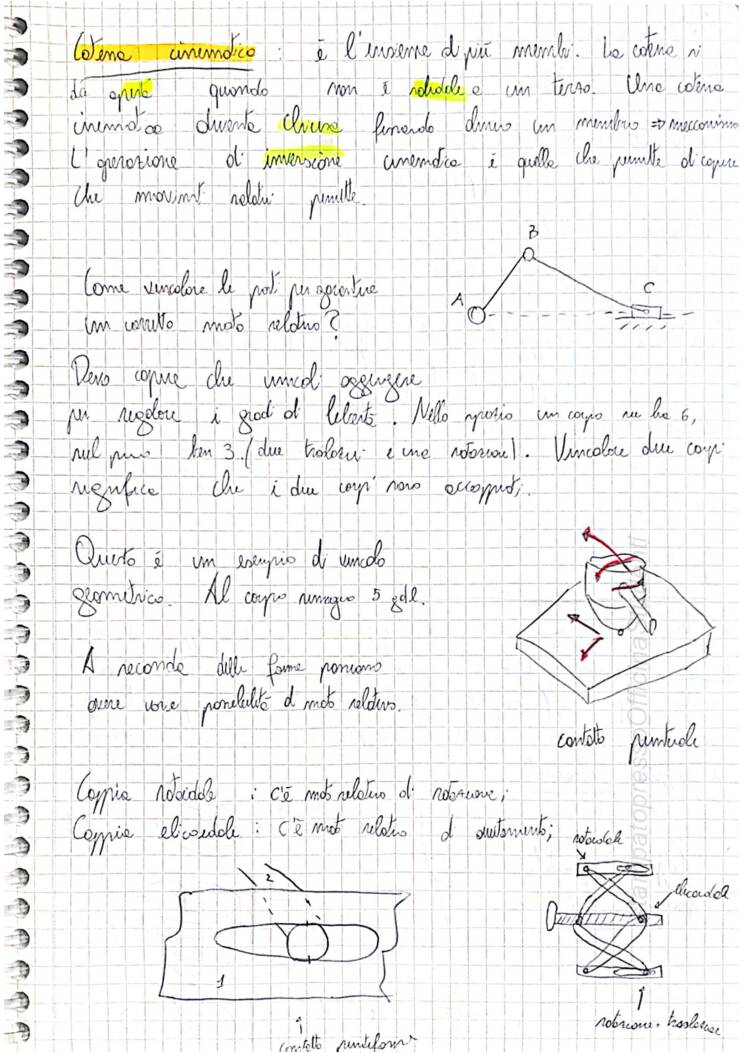 Catena cinematica : è l'insieme di più membri. La catena si
dà aperta quando non è solidale a un terzo. Una catena
cinematica diventa chiusa fissando almeno un membro ⇒ meccanismo
L'operazione di inversione cinematica è quella che permette di capire
che movimenti relativi permette.
Come vincolare le parti per garantire
un corretto moto relativo?
A
B
C
Devo capire che vincoli aggiungere
per regolare i gradi di libertà. Nello spazio un corpo ne ha 6,
nel piano ben 3. (due traslazioni e una rotazione). Vincolare due corpi
significa che i due corpi sono accoppiati.
Questo è un esempio di vincolo
geometrico. Al corpo rimangono 5 gdl.
A seconda delle forme possiamo
avere varie possibilità di moto relativo.
contatto puntuale
Coppia rotoidale : c'è moto relativo di rotazione;
Coppia elicoidale : c'è moto relativo di avvitamento;
rotoidale
elicoidale
2
1
contatto puntiforme
rotazione + traslazione